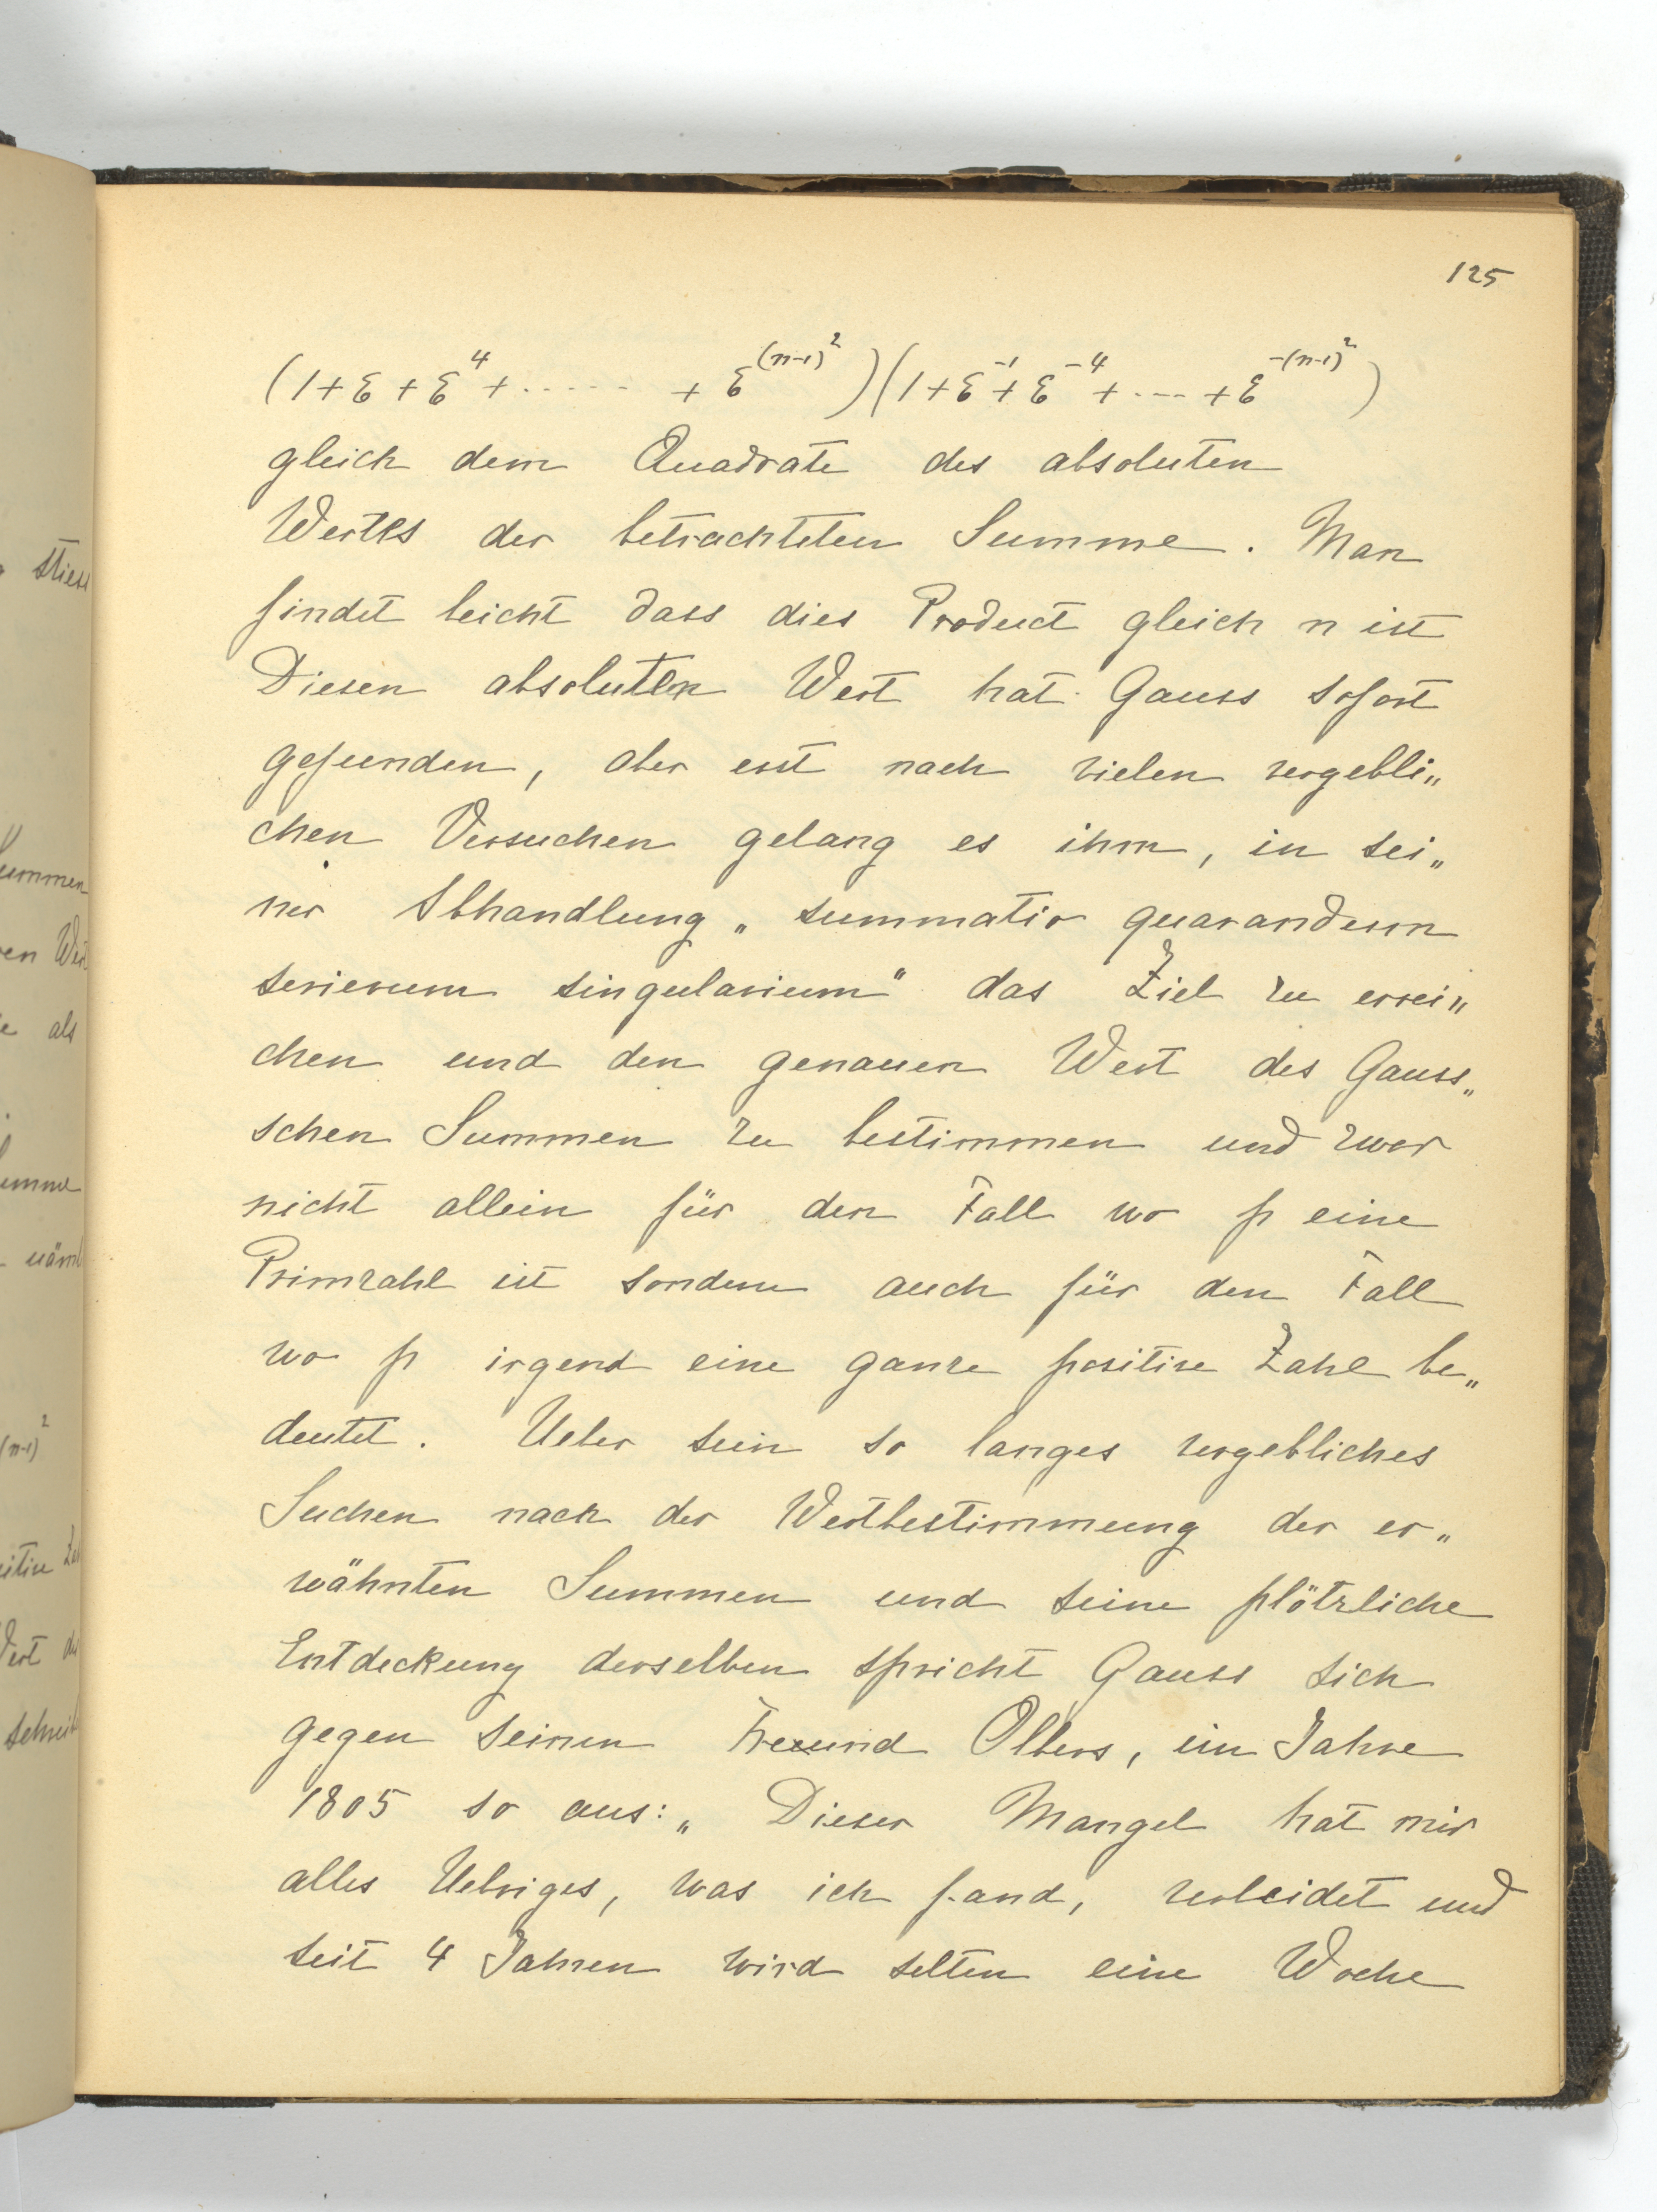 125
(1+ε+ε⁴+ ····· + ε^{(n-1)²})(1+ε^{-1}+ε^{-4}+ --- +ε^{-(n-1)²})
gleich dem Quadrate des absoluten
Wertes der betrachteten Summe. Man
findet leicht dass dies Product gleich n ist
Diesen absoluten Wert hat Gauss sofort
gefunden, aber erst nach vielen vergebli„
chen Versuchen gelang es ihm, in sei„
ner Abhandlung „summatio quarandum
serierum singularium" das Ziel zu errei„
chen und den genauen Wert des Gauss„
schen Summen zu bestimmen und zwar
nicht allein für den Fall wo p eine
Primzahl ist sondern auch für den Fall
wo p irgend eine ganze positive Zahl be„
deutet. Ueber sein so langes vergebliches
Suchen nach der Wertbestimmung der er„
wähnten Summen und seine plötzliche
Entdeckung derselben spricht Gauss sich
gegen seinen Freund Olbers, im Jahre
1805 so aus: „Dieser Mangel hat mir
alles Uebriges, was ich fand, verleidet und
seit 4 Jahren wird selten eine Woche
stiess
Summen
ren Wert
e als
Summe
(n-1)²
Wert